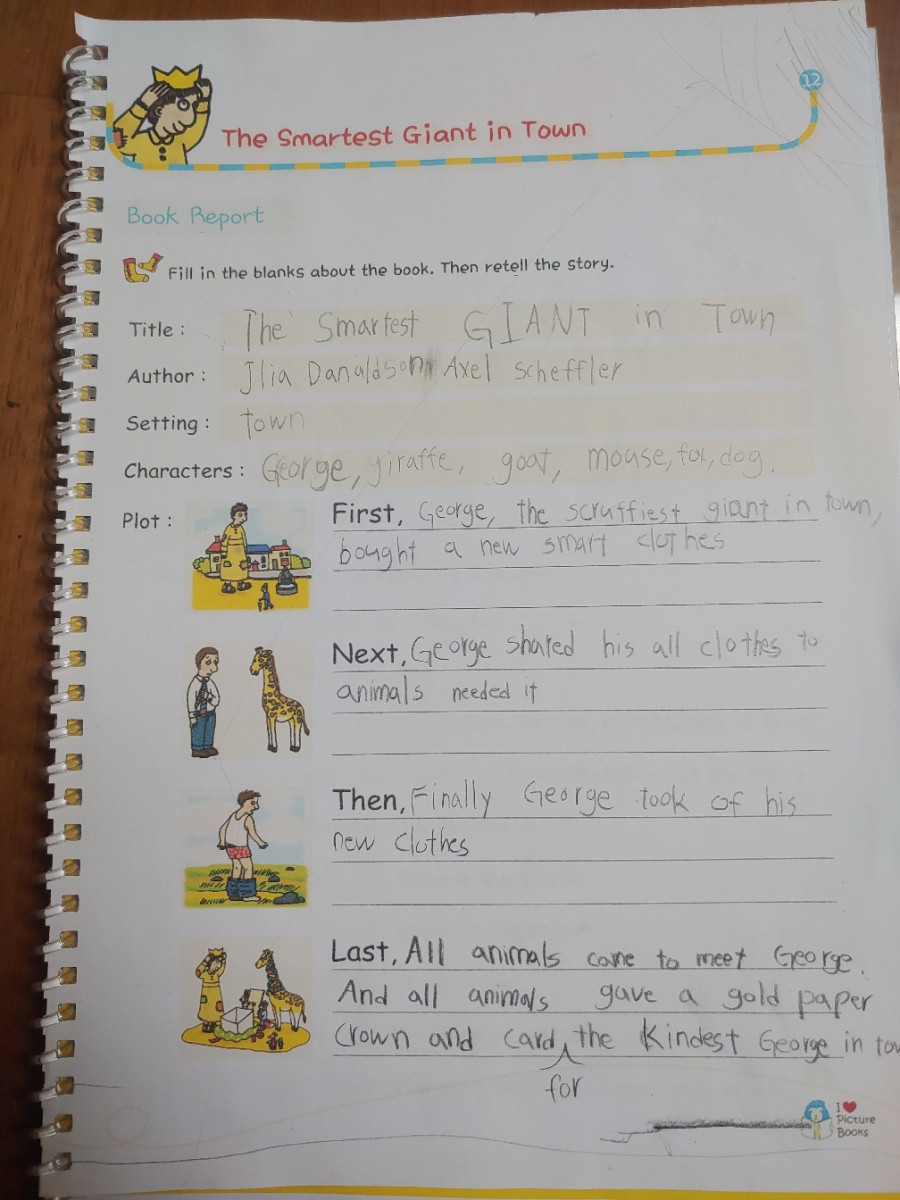 12
The Smartest Giant in Town
Book Report
Fill in the blanks about the book. Then retell the story.
Title : The Smartest GIANT in Town
Author : Jlia Danaldson Axel Scheffler
Setting : town
Characters : George, giraffe, goat, mouse, fox, dog.
Plot : First, George, the scruffiest giant in town,
bought a new smart clothes
Next, George shared his all clothes to
animals needed it
Then, Finally George took of his
new clothes
Last, All animals came to meet George.
And all animals gave a gold paper
Crown and card the Kindest George in tow
for
I
Picture
Books